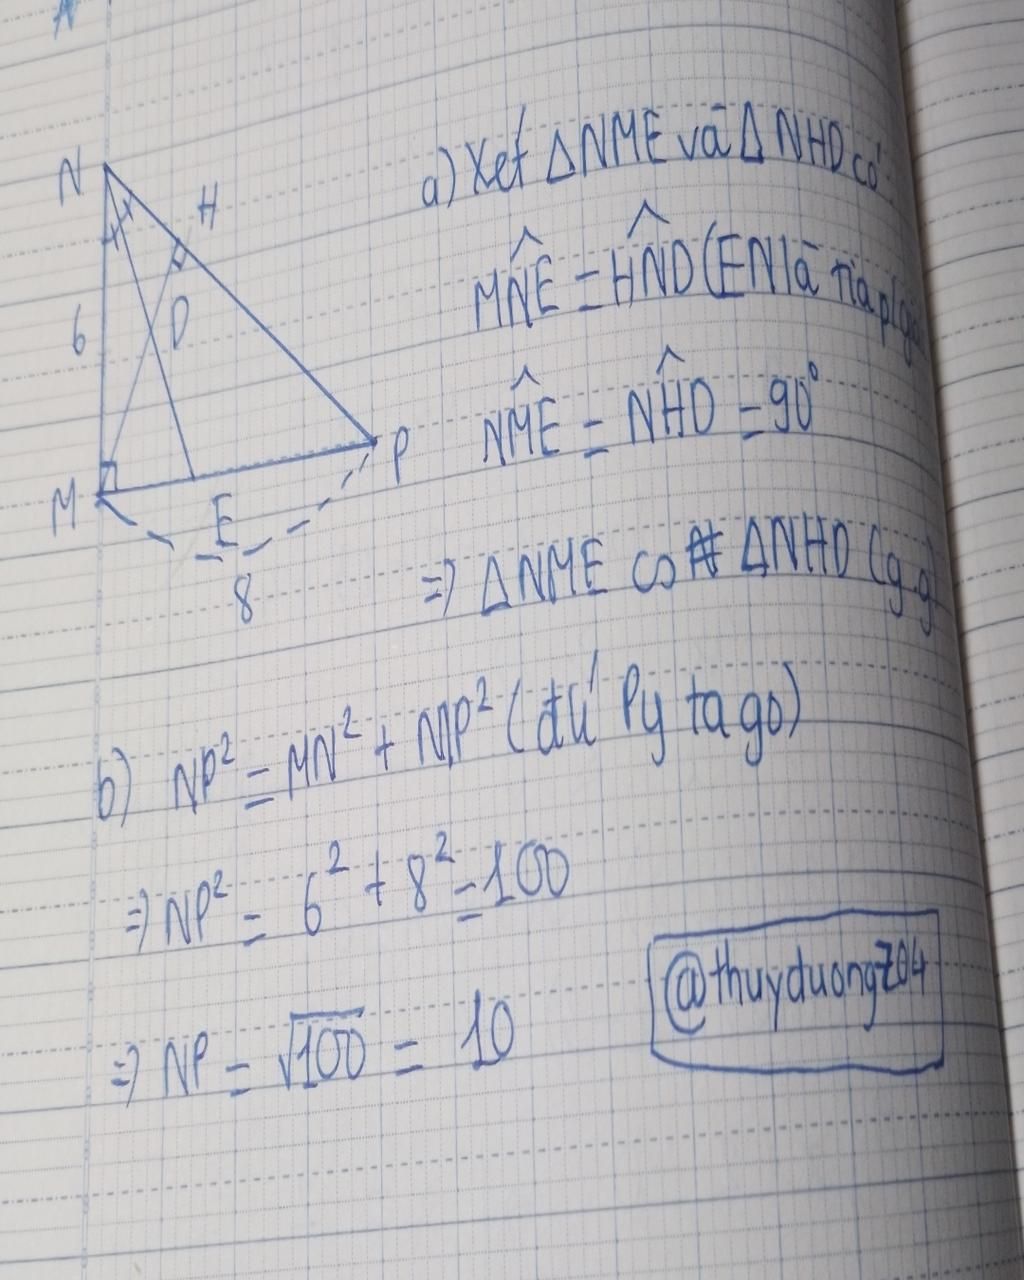 N
H
6
D
M
E
P
8
a) Xét ΔNME và ΔNHD có:
MN̂E = HN̂D (EN là tia p/giác
NM̂E = NĤD = 90°
=> ΔNME ∽ ΔNHD (g.g)
b) NP² = MN² + MP² (đ/lí Py ta go)
=> NP² = 6² + 8² = 100
=> NP = √100 = 10
@thuyduong704